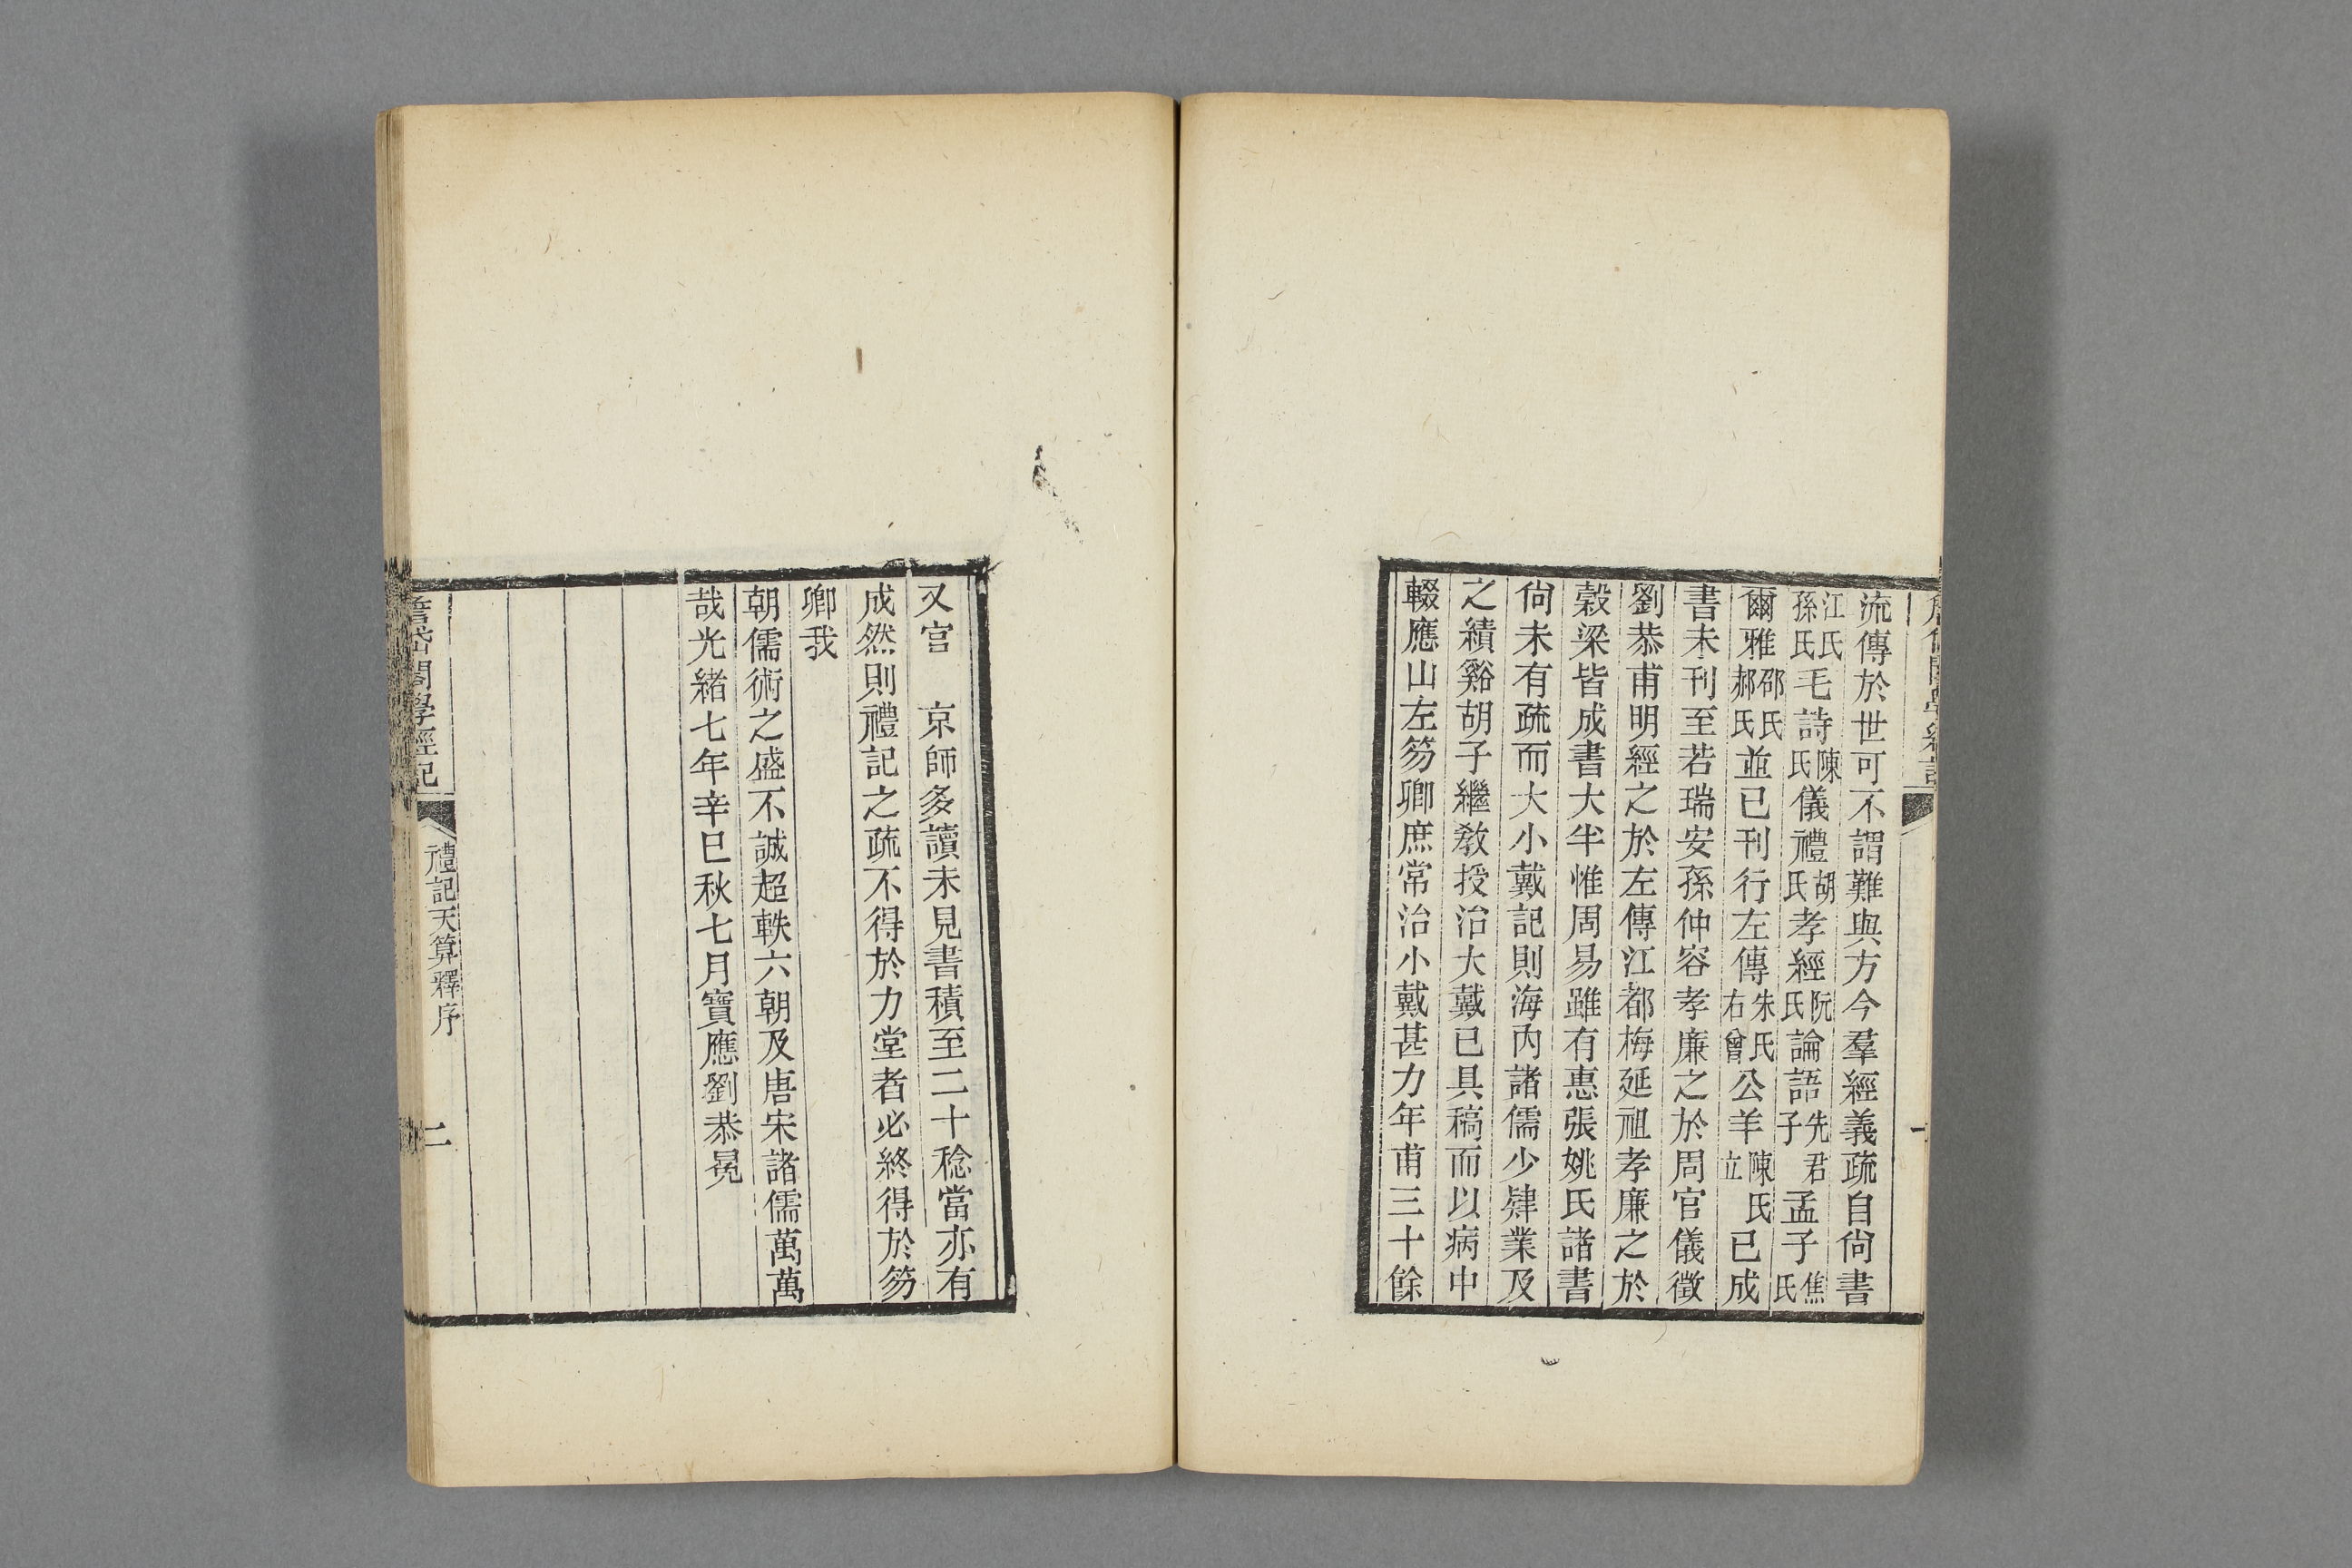 流傳於世可不謂難與方今羣經義疏自尙書
江氏孫氏毛詩陳氏儀禮胡氏孝經阮氏論語先君子孟子焦氏
爾雅邵氏郝氏並已刊行左傳朱氏右曾公羊陳氏立已成
書未刊至若瑞安孫仲容孝廉之於周官儀徵
劉恭甫明經之於左傳江都梅延祖孝廉之於
穀梁皆成書大半惟周易雖有惠張姚氏諸書
尙未有疏而大小戴記則海內諸儒少肄業及
之績谿胡子繼敎授治大戴已具稿而以病中
輟應山左笏卿庶常治小戴甚力年甫三十餘
又官　京師多讀未見書積至二十稔當亦有
成然則禮記之疏不得於力堂者必終得於笏
卿我
朝儒術之盛不誠超軼六朝及唐宋諸儒萬萬
哉光緒七年辛巳秋七月寶應劉恭冕
禮記天算釋序
二